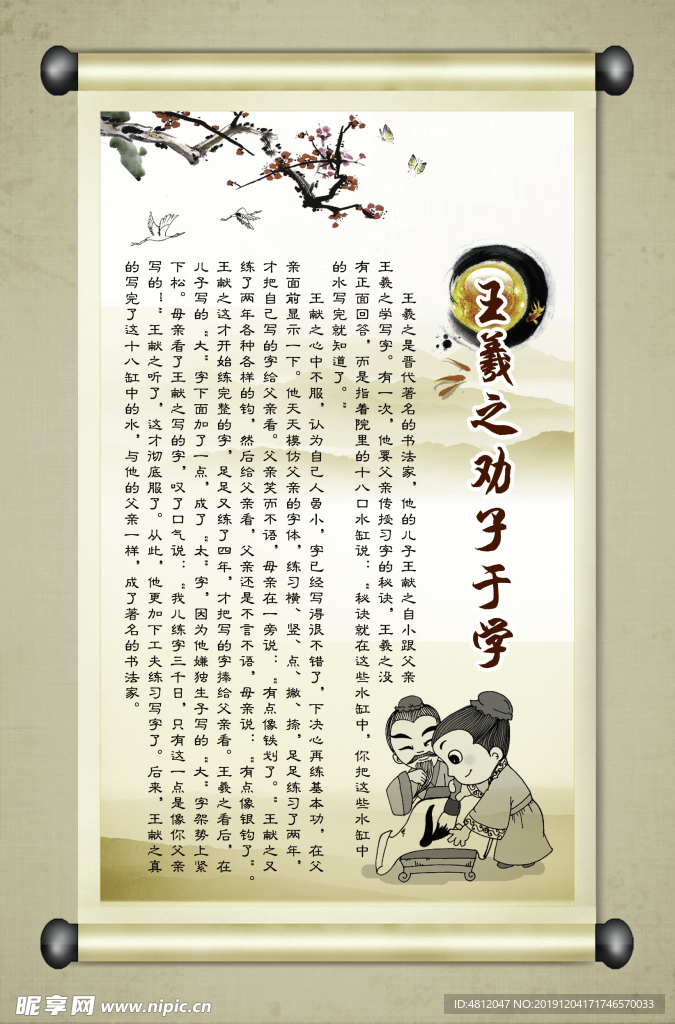 王羲之劝子于学
王羲之是晋代著名的书法家，他的儿子王献之自小跟父亲
王羲之学写字。有一次，他要父亲传授习字的秘诀，王羲之没
有正面回答，而是指着院里的十八口水缸说：“秘诀就在这些水缸中，你把这些水缸中
的水写完就知道了。”
王献之心中不服，认为自己人虽小，字已经写得很不错了，下决心再练基本功，在父
亲面前显示一下。他天天模仿父亲的字体，练习横、竖、点、撇、捺，足足练习了两年，
才把自己写的字给父亲看。父亲笑而不语，母亲在一旁说：“有点像铁划了。”王献之又
练了两年各种各样的钩，然后给父亲看，父亲还是不言不语，母亲说：“有点像银钩了”。
王献之这才开始练完整的字，足足又练了四年，才把写的字捧给父亲看。王羲之看后，在
儿子写的“大”字下面加了一点，成了“太”字，因为他嫌独生子写的“大”字架势上紧
下松。母亲看了王献之写的字，叹了口气说：“我儿练字三千日，只有这一点是像你父亲
写的！”王献之听了，这才彻底服了。从此，他更加下工夫练习写字了。后来，王献之真
的写完了这十八缸中的水，与他的父亲一样，成了著名的书法家。
昵享网 www.nipic.cn
ID:4812047 NO:20191204171746570033